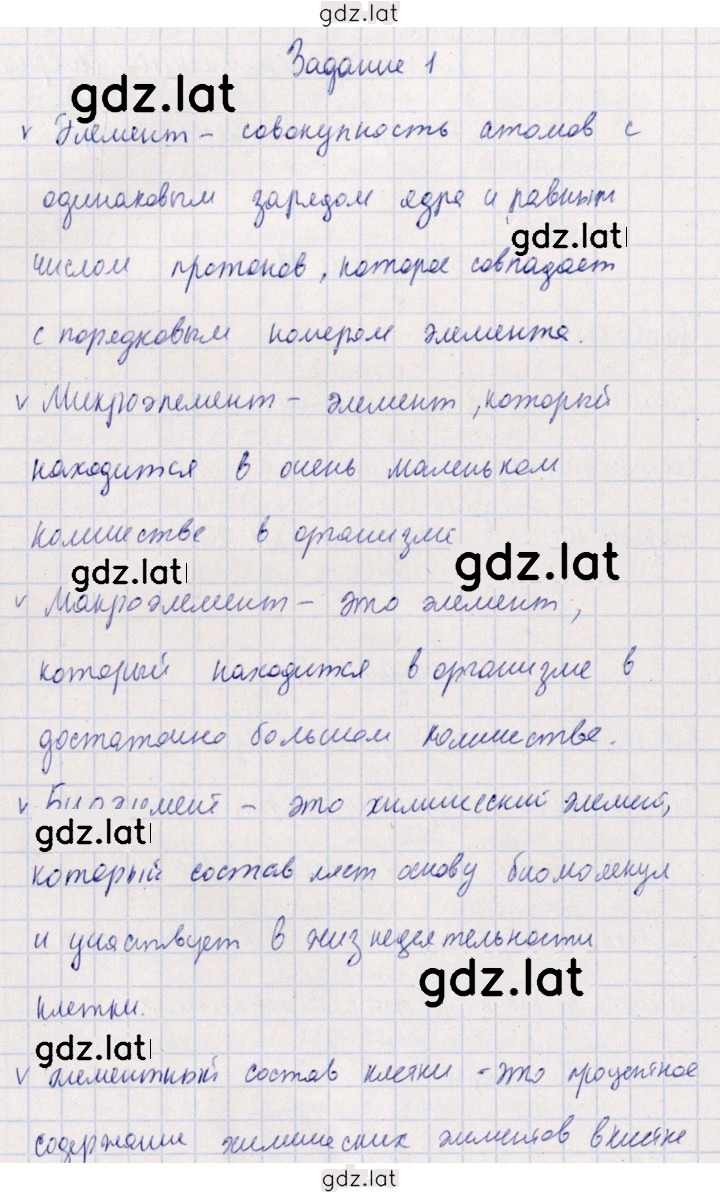 gdz.lat
Задание 1
gdz.lat
v Элемент - совокупность атомов с
одинаковым зарядом ядра и равным
gdz.lat
числом протонов, которое совпадает
с порядковым номером элемента.
v Микроэлемент - элемент, который
находится в очень маленьком
количестве в организме
gdz.lat
gdz.lat
v Макроэлемент - это элемент,
который находится в организме в
достаточно большом количестве.
v Биоэлемент - это химический элемент,
gdz.lat
который составляет основу биомолекул
и участвует в жизнедеятельности
gdz.lat
клетки.
gdz.lat
v Элементный состав клетки - это процентное
содержание химических элементов в клетке
gdz.lat